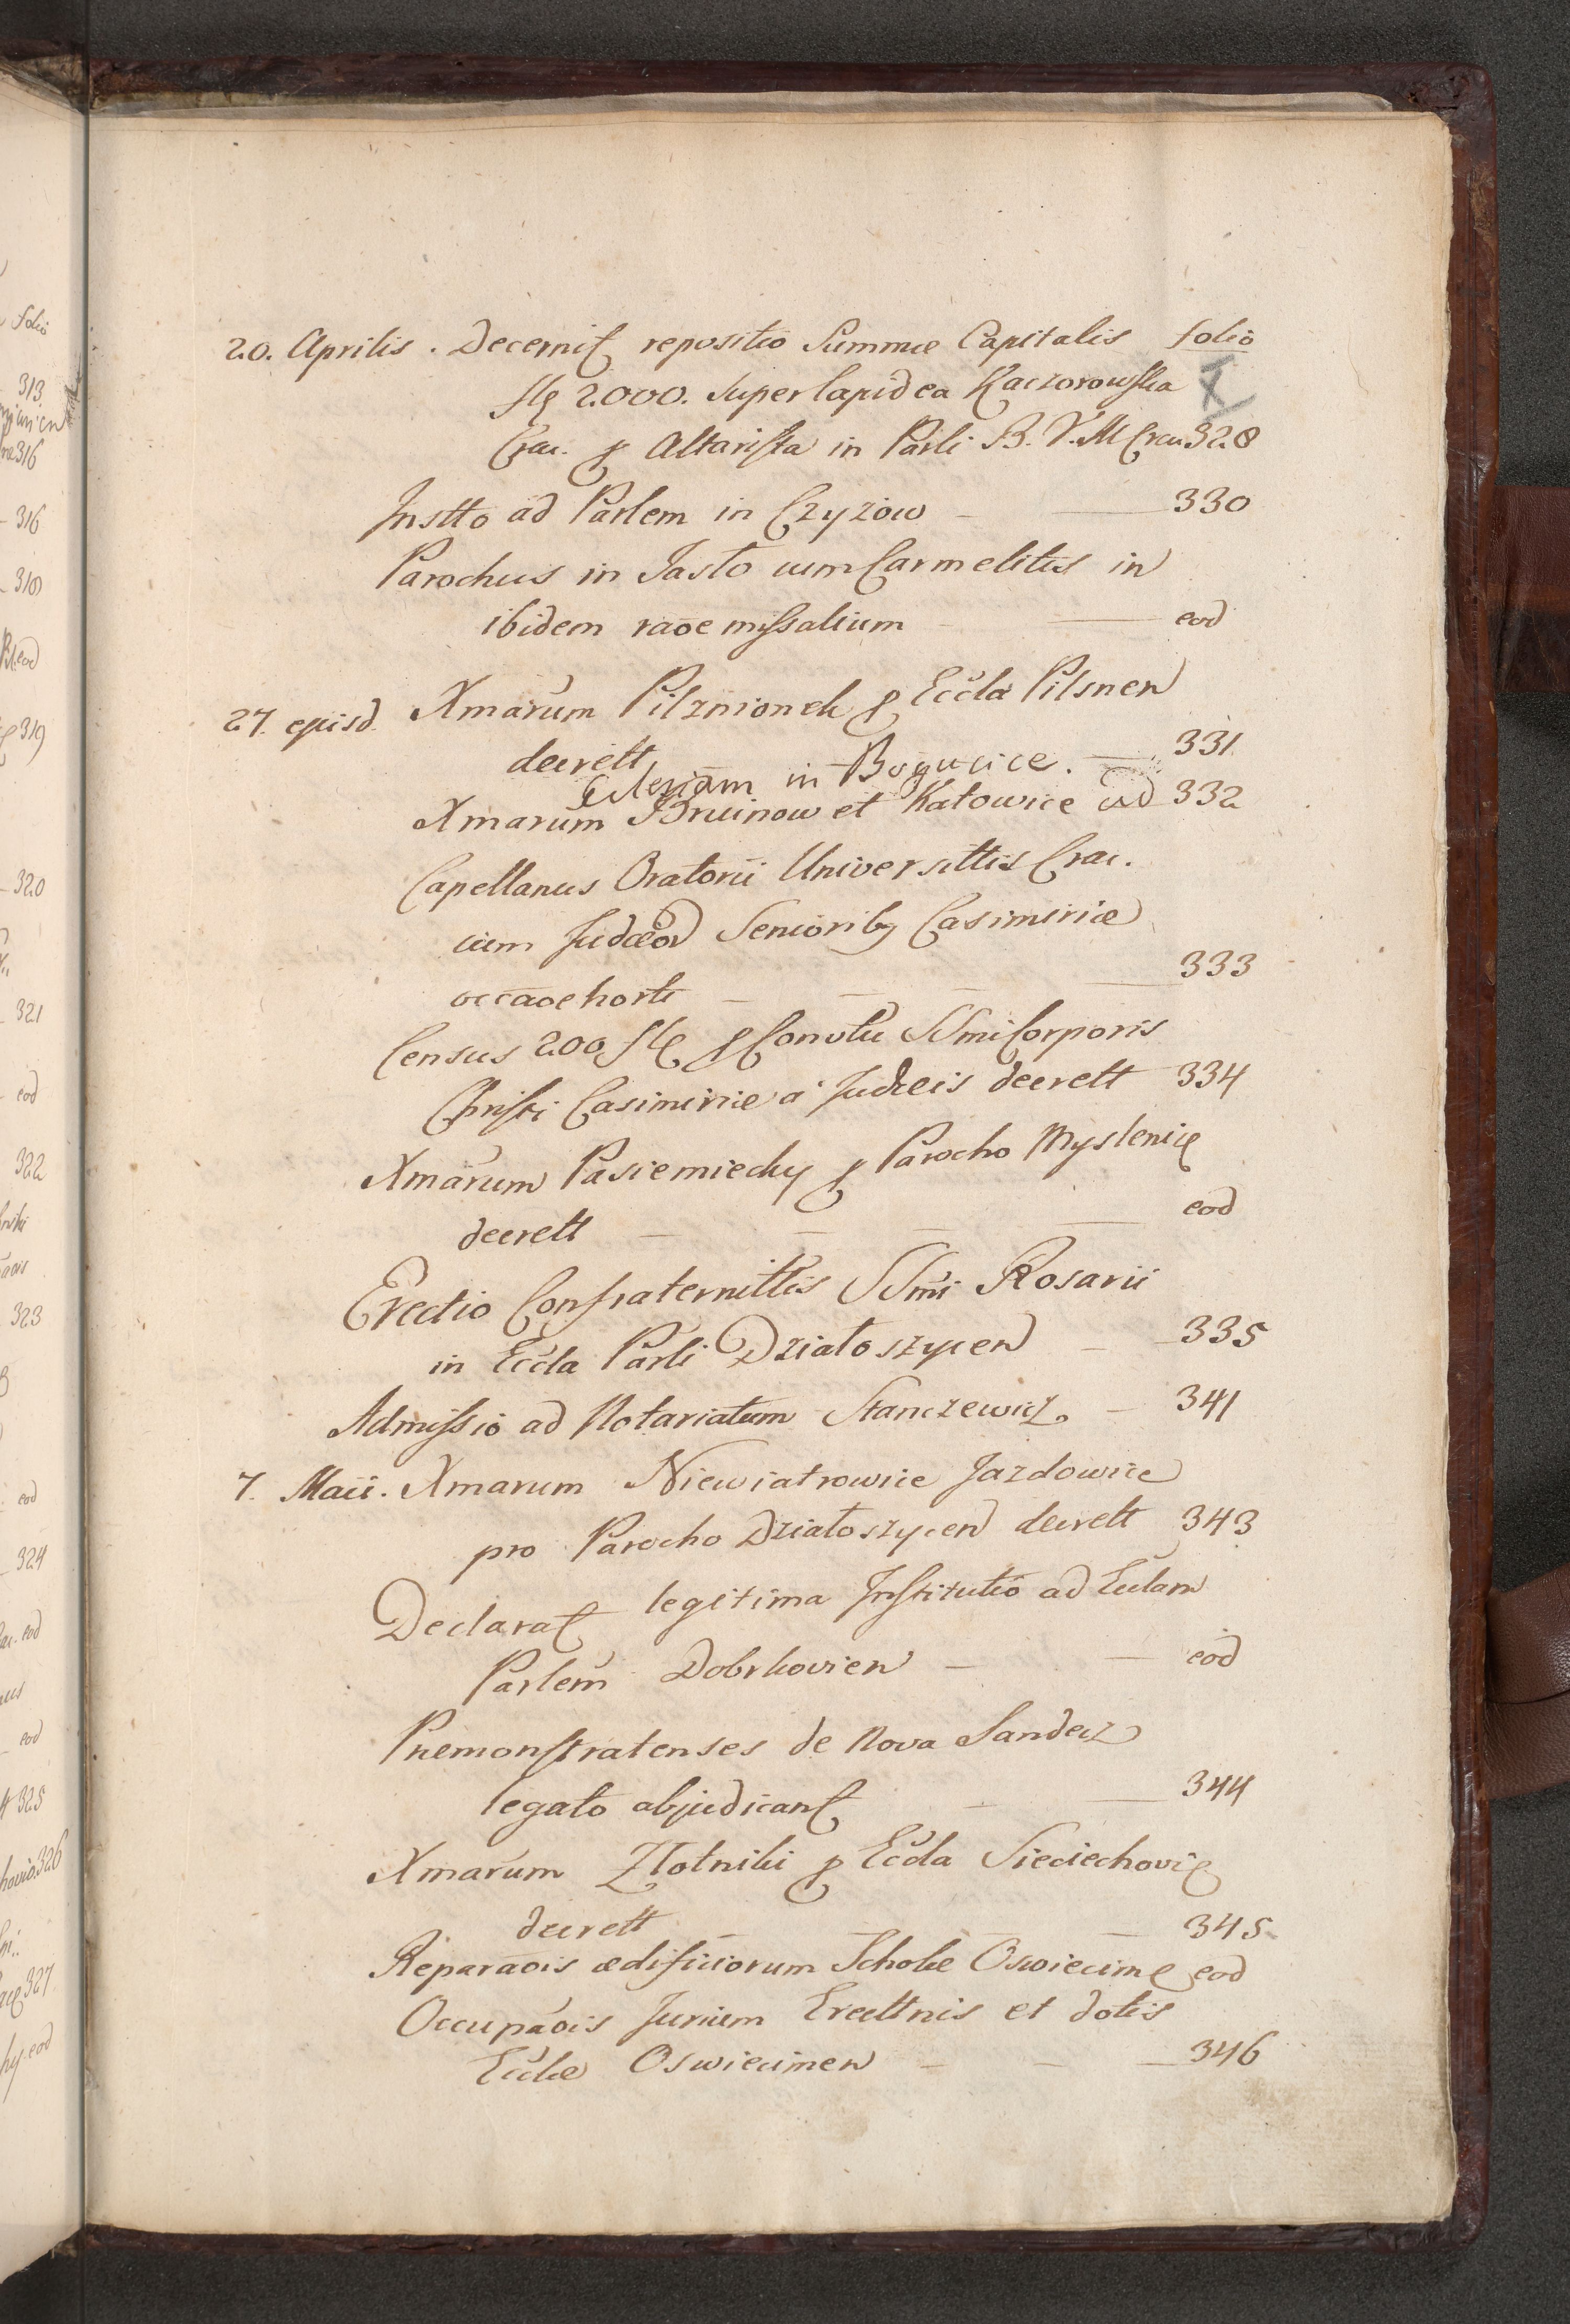 20. Aprilis. Decernit repositio Summæ Capitalis folio
fl 2000. super lapidea Kaczorowska
Crac. p Altarista in Parli B. V. M Crac 328
Instto ad Parlem in Czyzow 330
Parochus in Jasło cum Carmelitis in
ibidem raōe missalium eod
27. ejusd. Xmarum Pilznionek p Eccla Pilsnen
decrett 331
Ecclesiam in Bogucice.
Xmarum Bruinow et Katowice ad 332
Capellanus Oratorii Universittis Crac.
cum Judæor Seniorib9 Casimiriæ
occaōe horti 333
Census 200 fl p Convtu SSmi Corporis
Christi Casimiriæ a Judæis decrett 334
Xmarum Pasiemiechy p Parocho Myslenic
decrett eod
Erectio Confraternittis SSmi Rosarii
in Eccla Parli Działoszycen 335
Admissio ad Notariatum Stanczewicz. 341
7. Maii. Xmarum Niewiatrowice Jazdowice
pro Parocho Działoszycen decrett 343
Declarat legitima Institutio ad Ecclam
Parlem Dobrkovien eod
Præmonstratenses de Nova Sandecz
legato abjudicant 344
Xmarum Złotniki p Eccla Sieciechovie
decrett 345
Reparaōis ædificiorum Scholæ Oswiecime eod
Occupaōis Jurium Erecttnis et dotis
Ecclæ Oswiecimen 346